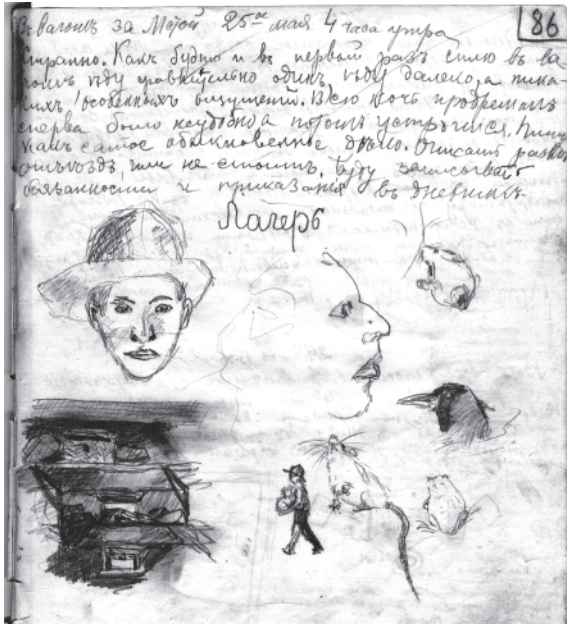 Въ вагонѣ за Мгой 25ое мая 4 часа утра
86
Странно. Какъ будто и въ первый разъ сплю въ ва
гонѣ, ѣду сравнительно одинъ, ѣду далеко, а ника-
кихъ особенныхъ ощущений. Всю ночь продремалъ
сперва было неудобно а потомъ устроился. Пишу
какъ самое обыкновенное дѣло. Описать развѣ
отъѣздъ, или не стоитъ. Буду записывать
обязанности и приказания въ дневникъ
Лагерь